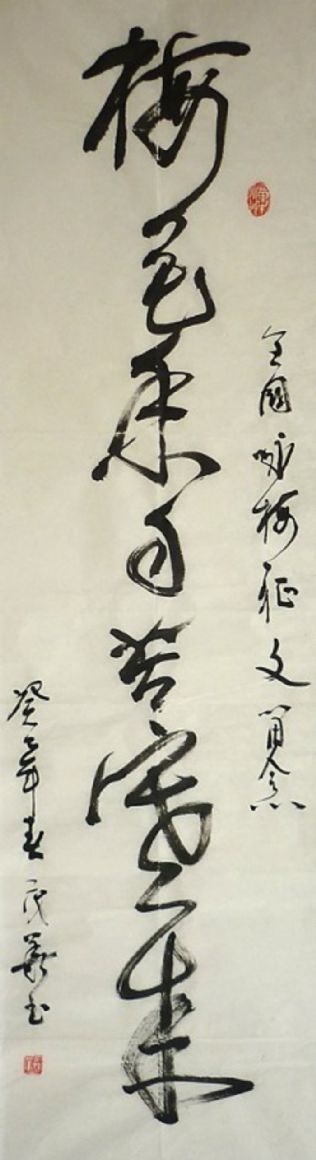 全國咏梅征文念
梅花香自苦寒来
癸巳年春书